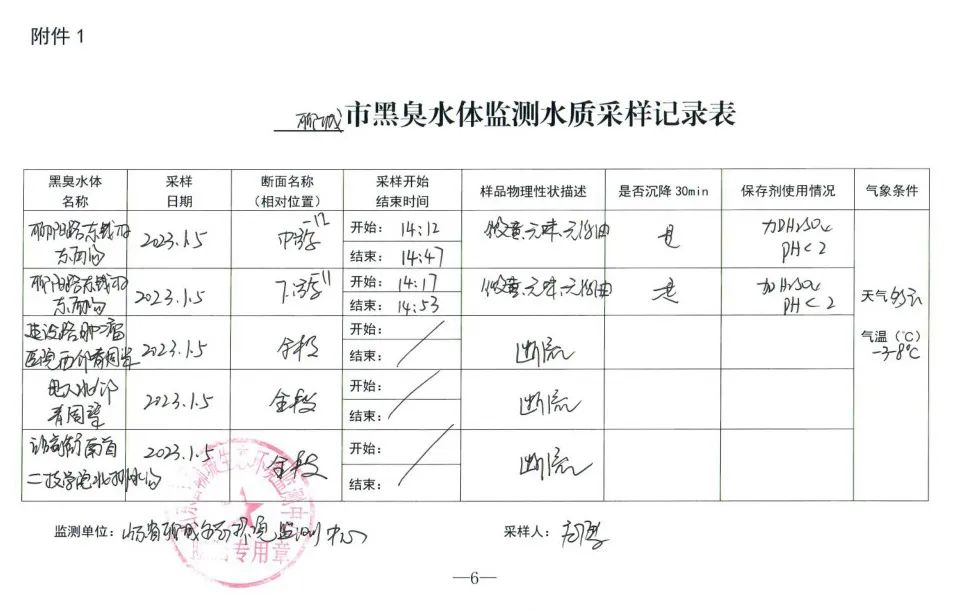 附件1
聊城市黑臭水体监测水质采样记录表
黑臭水体名称 采样日期 断面名称(相对位置) 采样开始结束时间 样品物理性状描述 是否沉降30min 保存剂使用情况 气象条件
聊阳路东 东 2023.1.5 中游-12 开始: 14:12 结束: 14:47 微黄无味无浮油 是 加H₂SO₄ PH<2
聊阳路东 东 2023.1.5 下游-11 开始: 14:17 结束: 14:53 微黄无味无浮油 是 加H₂SO₄ PH<2
天气 多云
气温(℃)
-3-8℃
建设路肿瘤医院西侧 2023.1.5 全段 开始: 结束: 断流
2023.1.5 全段 开始: 结束: 断流
南首 二技学院 2023.1.5 全段 开始: 结束: 断流
监测单位: 山东省聊城生态环境监测中心 采样人:
专用章
—6—